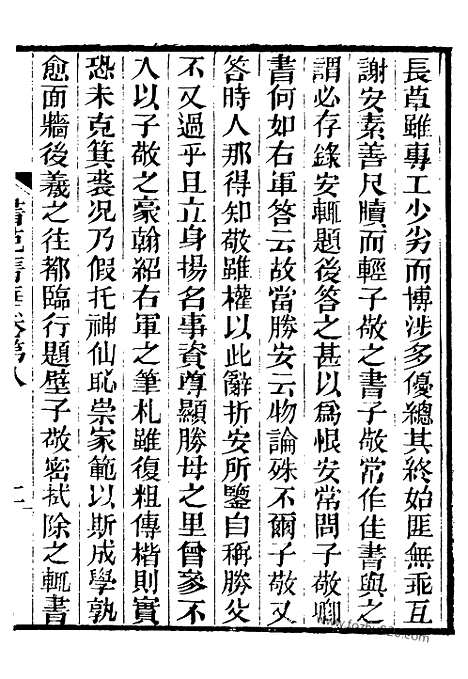 長草雖專工少劣而博涉多優總其終始匪無乖互
謝安素善尺牘而輕子敬之書子敬常作佳書與之
謂必存錄安輒題後答之甚以爲恨安常問子敬卿
書何如右軍答云故當勝安云物論殊不爾子敬又
答時人那得知敬雖權以此辭折安所鑒自稱勝父
不又過乎且立身揚名事資尊顯勝母之里曾參不
入以子敬之豪翰紹右軍之筆札雖復粗傳楷則實
恐未克箕裘况乃假托神仙恥崇家範以斯成學孰
愈面牆後羲之往都臨行題壁子敬密拭除之輒書
書苑菁華卷第八
www.fozhu920.com